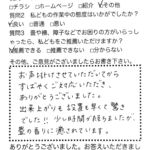 □チラシ □ホームページ □紹介 ☑その他
質問2 私どもの作業中の態度はいかがでしたか？
☑良い □普通 □悪い
質問3 畳や襖、障子などでお困りの方がいらっしゃったら、私どもをご推薦いただけますか？
☑推薦できる □推薦できない □分からない
その他、ご意見がございましたらお書き下さい。
お声掛けさせていただいてから
すばやくご対応いただき、
ありがとうございました。
出来上がりも
でした!!
少し時間が経ちましたが、
畳の香りに癒されています。
ありがとうございました。お答えいただきまして